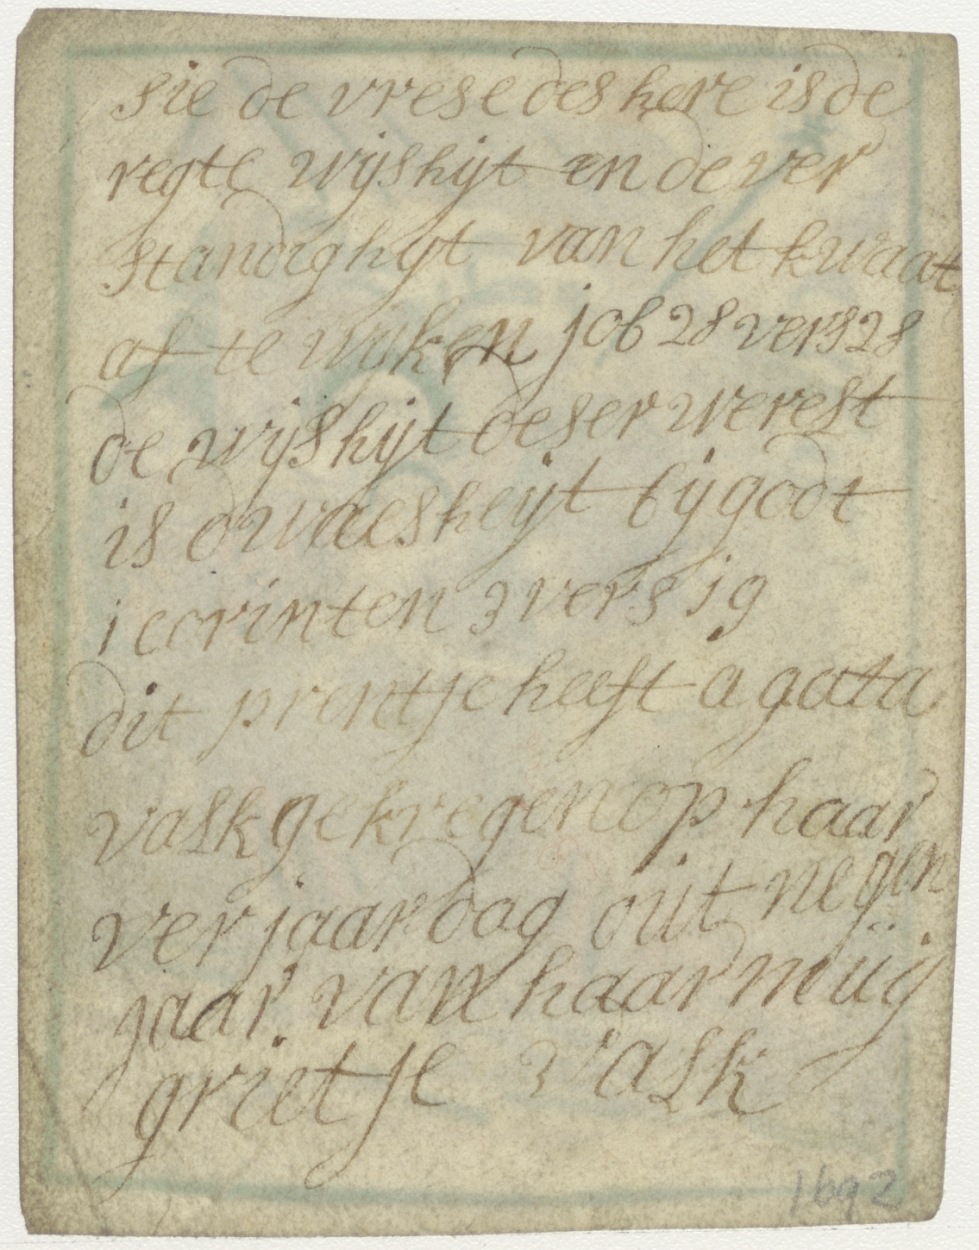 sie de vrese des here is de
regte wijshijt en de ver
standighyt van het kwaat
af te wijken job 28 vers 28
de wijshijt deser werelt
is dwaesheijt bij godt
i corinten 3 vers 19
dit prentje heeft agata
valk gekregen op haar
verjaardag out negen
jaar van haar muij
grietje valk
1692